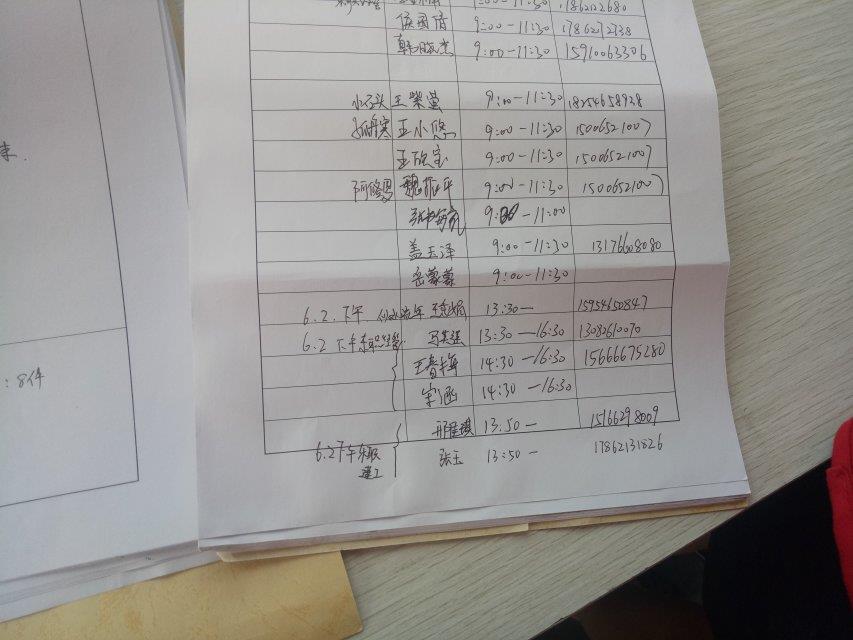 9:00-11:30 17862122680
侯国倩 9:00-11:30 17862172738
韩 杰 9:00-11:30 15910063306
小石头 王紫萤 9:00-11:30 18254658928
孤舟寒 王小悠 9:00-11:30 15006521007
王欣宝 9:00-11:30 15006521007
阿修罗 魏振平 9:00-11:30 15006521007
9:00-11:00
盖玉泽 9:00-11:30 13176608080
岳蒙蒙 9:00-11:30
6.2.下午 似水流年 13:30— 15954650847
6.2 下午东职 马英强 13:30-16:30 13082610070
王春梅 14:30-16:30 15666675280
宋涵 14:30-16:30
邢程琪 13:50— 15166298009
6.2下午东职 张玉 13:50— 17862131826
建工
来.
:8件